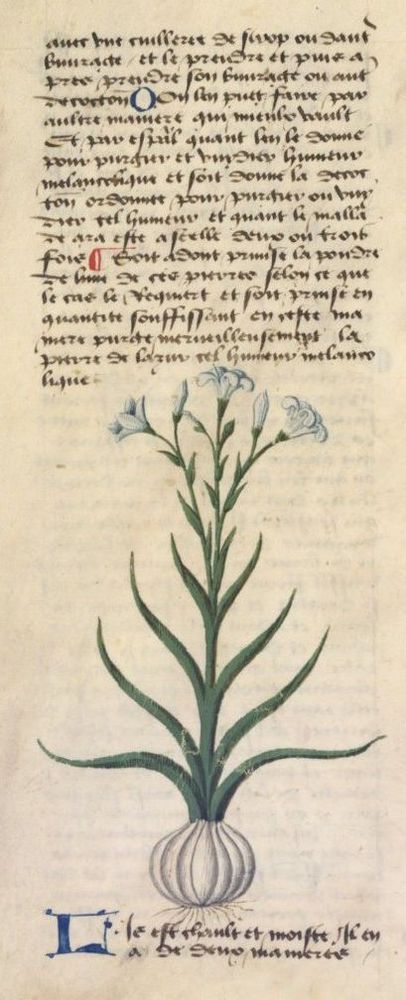 avec une cuilleree de sirop ou daut
buurage et le preidre et puis a
pres preidre son buurage ou aut
decoction On len puet faire par
aultre maniere qui mieulx vault
Et par espāl quant len le donne
pour purgier et vuydier humeur
melancolique et soit donne la decoc
ton ordonnee pour purgier ou vuy
dier tel humeur et quant le malla
de ara este a scelle deux ou trois
fois Soit adont prinse la pouldre
de lune de ces pierres selon ce que
le cas le Requiert et soit prinse en
quantite souffissant en ceste ma
niere purge merveilleusement la
pierre de lazur tel humeur melanco
lique
Lis est chault et moiste Il en
a de deux manieres